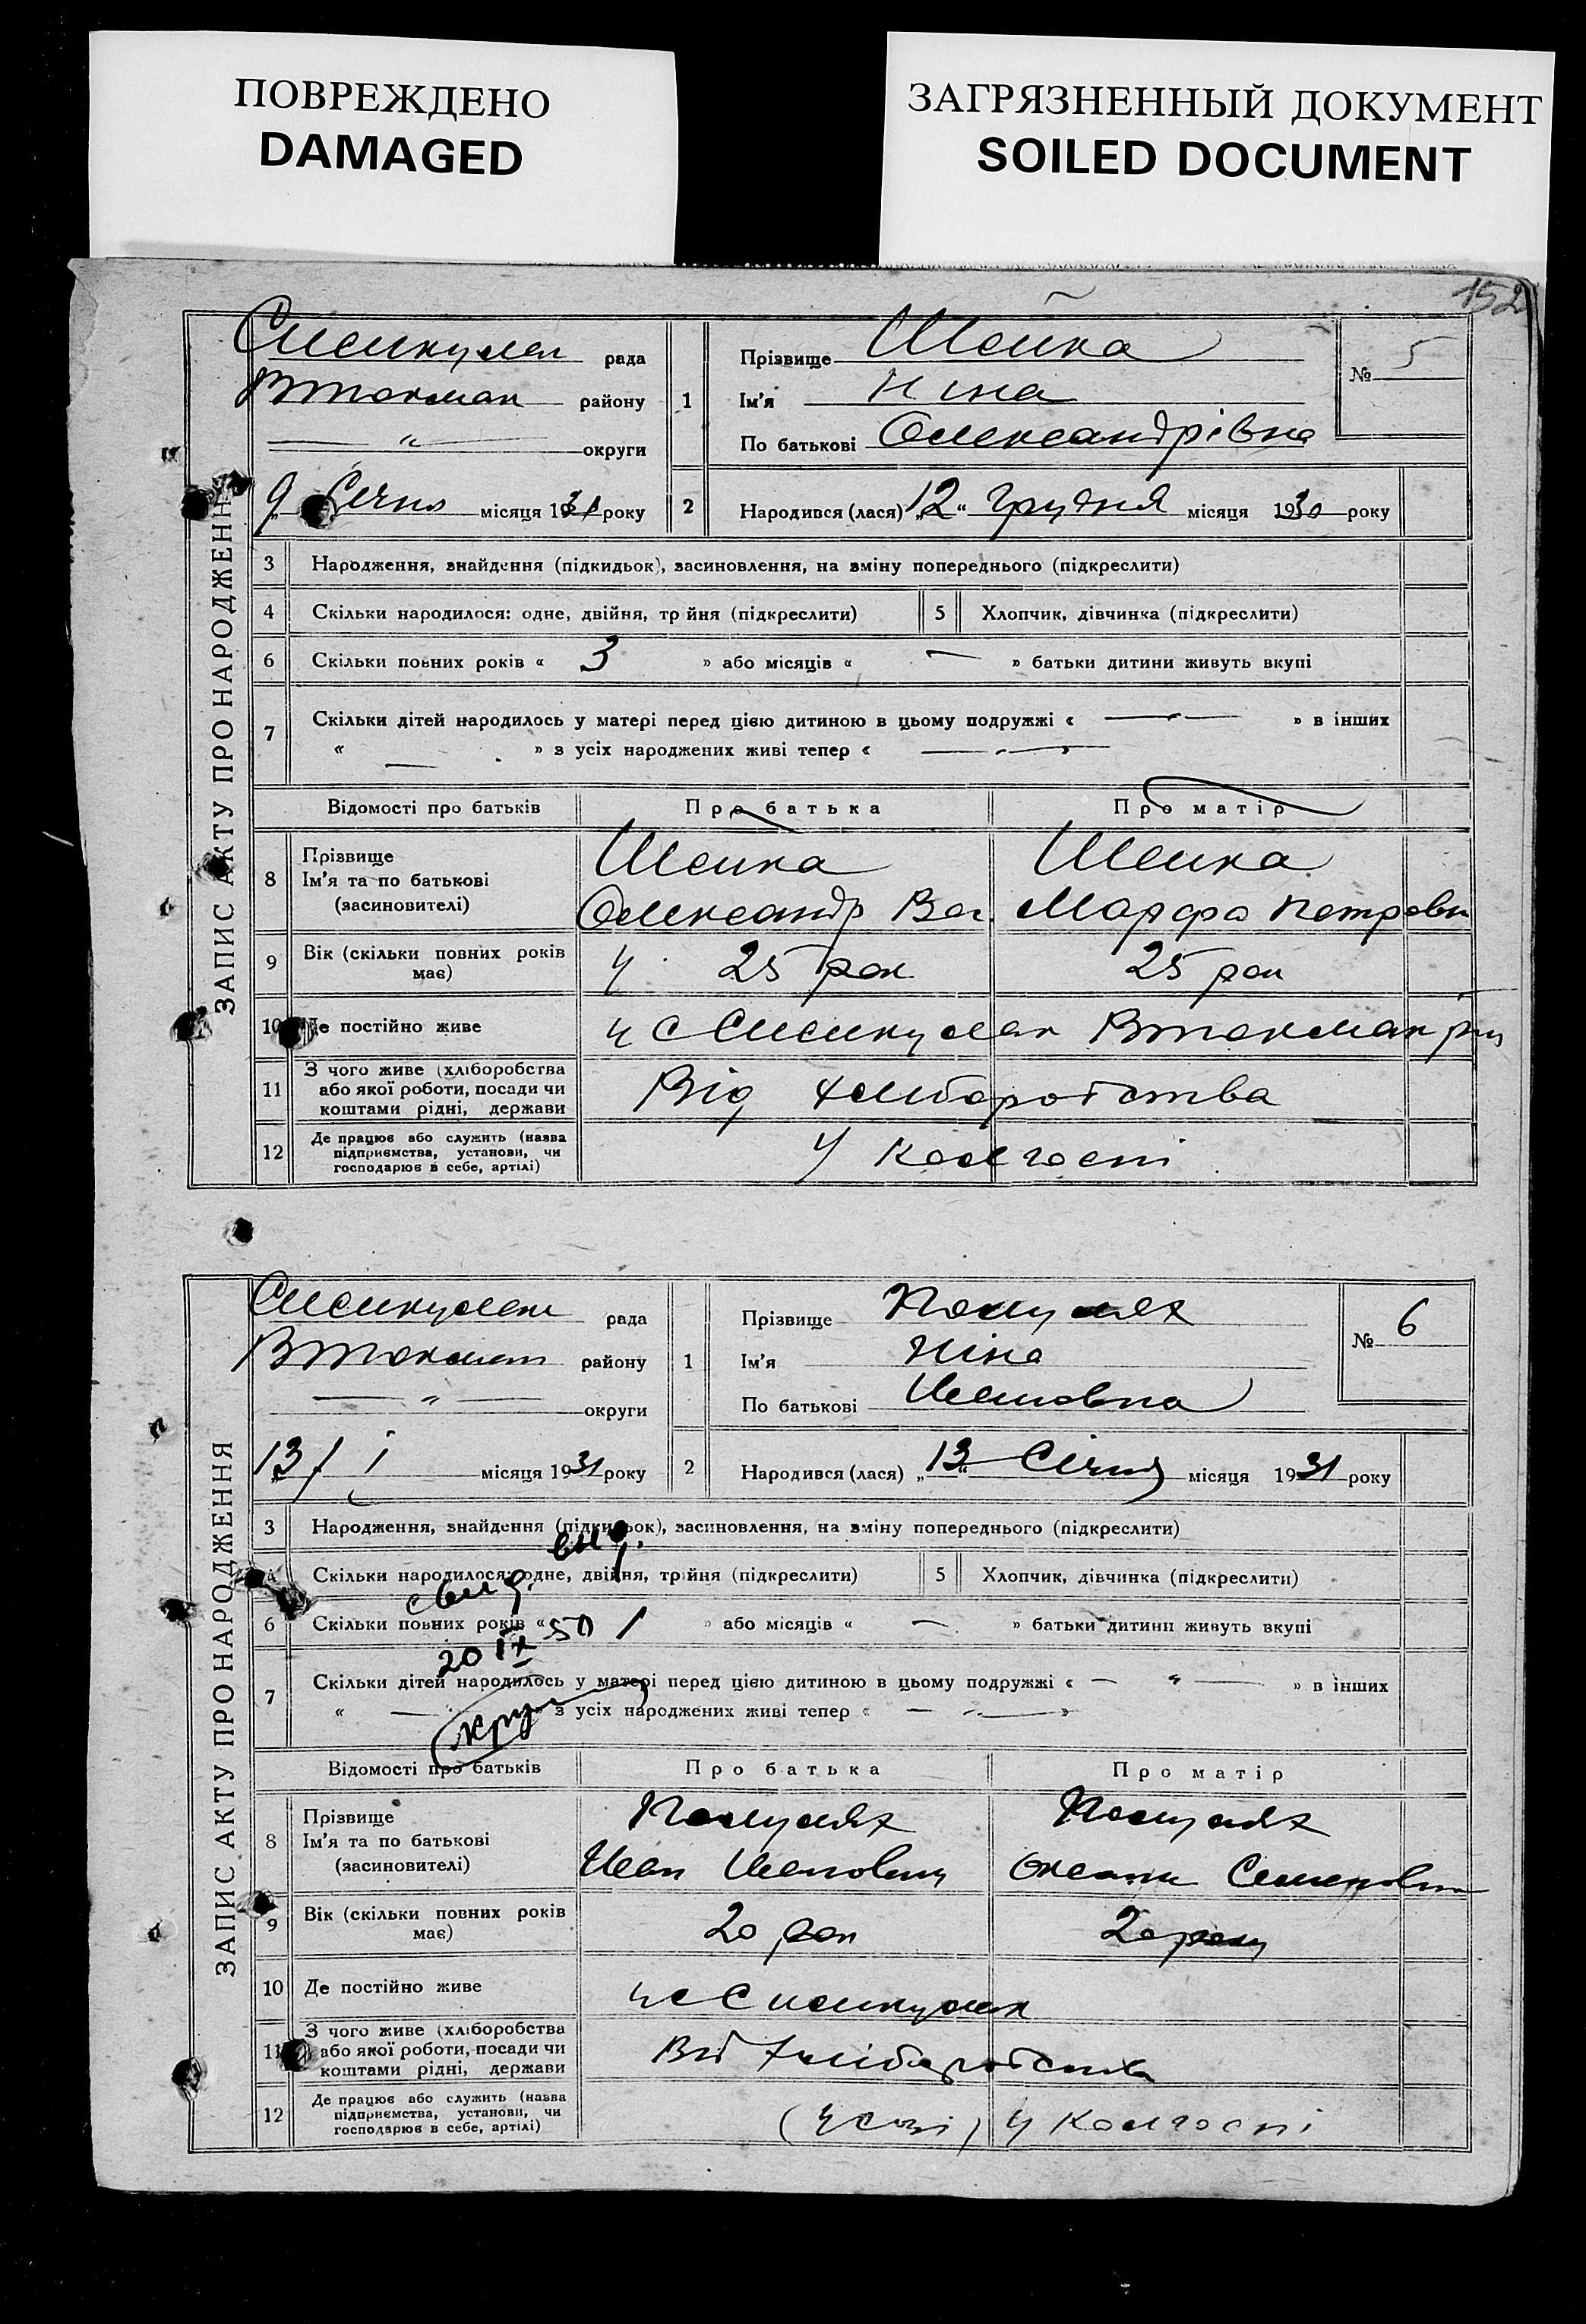 ПОВРЕЖДЕНО
DAMAGED
ЗАГРЯЗНЕННЫЙ ДОКУМЕНТ
SOILED DOCUMENT
152
ЗАПИС АКТУ ПРО НАРОДЖЕННЯ
рада
району
округи
9 Січня місяця 1931 року
1
Прізвище Шейка
Ім'я Нина
По батькові Олександрівна
№ 5
2
Народився (лася) „12“ Грудня місяця 1930 року
3 Народження, знайдення (підкидьок), засиновлення, на зміну попереднього (підкреслити)
4 Скільки народилося: одне, двійня, трійня (підкреслити)
5 Хлопчик, дівчинка (підкреслити)
6 Скільки повних років « 3 » або місяців « — » батьки дитини живуть вкупі
7 Скільки дітей народилось у матері перед цією дитиною в цьому подружжі « — » в інших
« — » з усіх народжених живі тепер « — »
Відомості про батьків Про батька Про матір
8 Прізвище
Ім'я та по батькові
(засновителі)
Шейка Шейка
Олександр Вас. Марфа Петровн
9 Вік (скільки повних років має) 25 рок 25 рок
10 Де постійно живе
11 З чого живе (хліборобства
або якої роботи, посади чи
коштами рідні, держави
Від хліборобства
12 Де працює або служить (назва
підприємства, установи, чи
господарює в себе, артілі)
У колгоспі
ЗАПИС АКТУ ПРО НАРОДЖЕННЯ
рада
району
округи
13/ І місяця 1931 року
1
Прізвище
Ім'я Ніна
По батькові Ивановна
№ 6
2
Народився (лася) „13“ Січня місяця 1931 року
3 Народження, знайдення (підкидьок), засиновлення, на зміну попереднього (підкреслити)
4 Скільки народилося: одне, двійня, трійня (підкреслити)
5 Хлопчик, дівчинка (підкреслити)
6 Скільки повних років « 1 » або місяців « — » батьки дитини живуть вкупі
свид.
20 IX 50
7 Скільки дітей народилось у матері перед цією дитиною в цьому подружжі « — » в інших
« — » з усіх народжених живі тепер « — »
Відомості про батьків Про батька Про матір
8 Прізвище
Ім'я та по батькові
(засновителі)
Иван Иванович Оксана Семеновна
9 Вік (скільки повних років має) 20 рок 20 року
10 Де постійно живе
11 З чого живе (хліборобства
або якої роботи, посади чи
коштами рідні, держави
Від хліборобства
12 Де працює або служить (назва
підприємства, установи, чи
господарює в себе, артілі)
У колгоспі